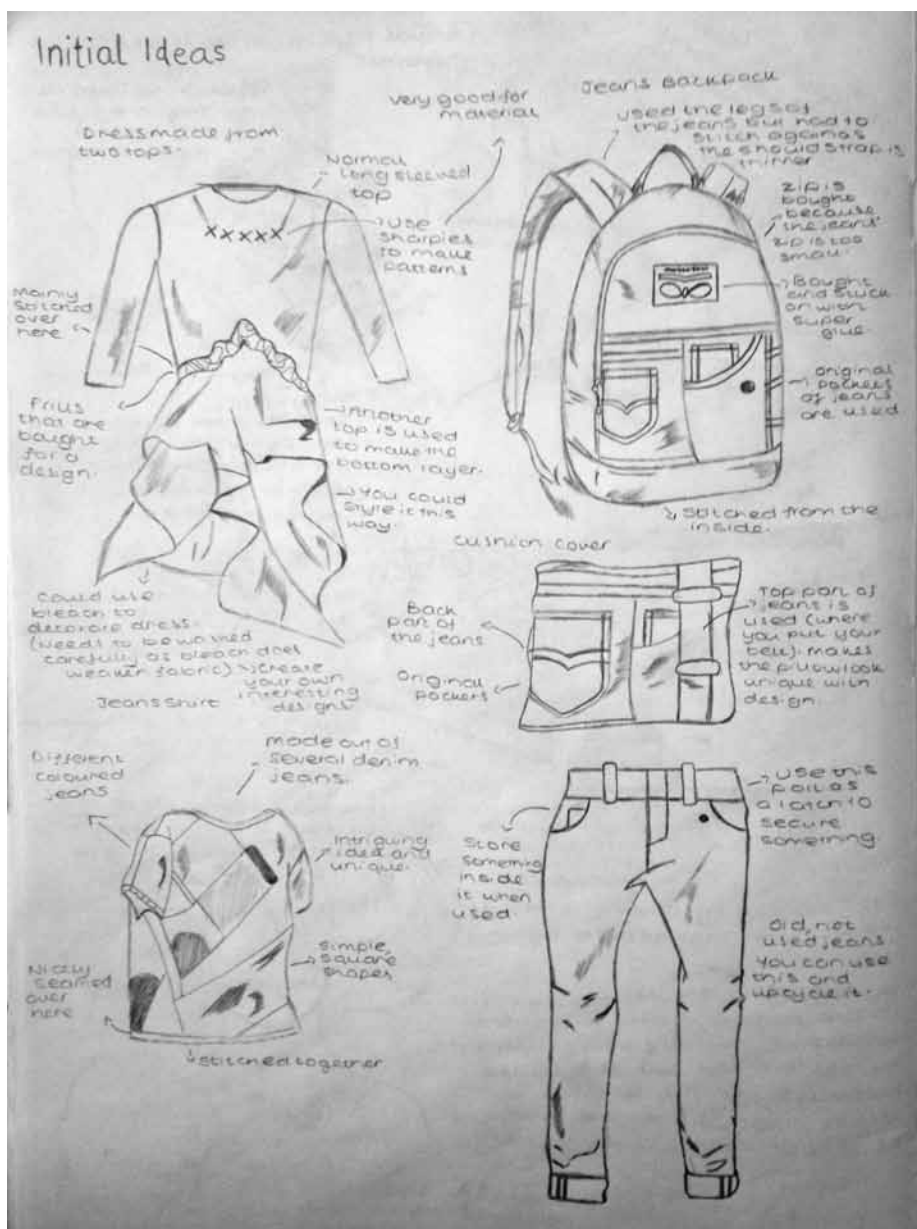 Initial Ideas
Dress made from
two tops.
Normal
long sleeved
top
very good for
material
use
sharpies
to make
patterns
Mainly
stitched
over
here
Frills
that are
bought
for a
design.
Another
top is used
to make the
bottom layer.
You could
style it this
way.
Could use
bleach to
decorate dress.
(needs to be washed
carefully as bleach does
weaken fabric)
create
your own
interesting
designs
Jeans Backpack
used the legs of
the jeans but had to
stitch again as
the should strap is
thinner
zip is
bought
because
the jeans'
zip is too
small.
Bought
and stuck
on with
super
glue.
original
pockets
of jeans
are used
stitched from the
inside.
Cushion cover
Back
part of
the jeans
Original
pockets
Top part of
jeans is
used (where
you put your
belt). makes
the pillow look
unique with
design.
Jeans shirt
Different
coloured
jeans
made out of
several denim
jeans.
Intriguing
idea and
unique.
simple,
square
shapes
Nicely
seamed
over
here
stitched together
Store
something
inside
it when
used.
use this
part as
a latch to
secure
something
Old, not
used jeans
You can use
this and
upcycle it.